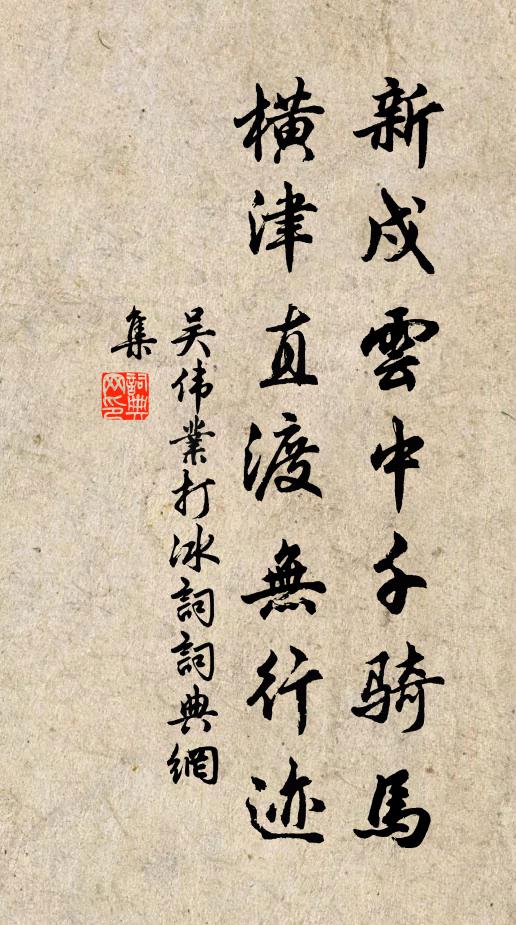 新戍雲中千骑馬
横津直渡無行迹
吴伟業打冰詞詞典網
集
詞典
网印